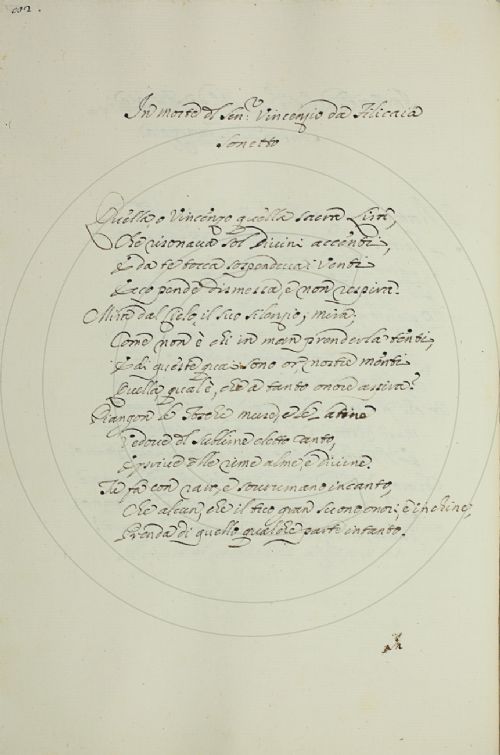 In morte del Sen.r Vincenzio da Filicaia
Sonetto
Quella, o Vincenzo, quella sacra Lira,
Che risonava sol Divini accenti,
E da te tocca sospendeva i Venti
Ecco pende dismessa, e non respira.
Mira dal Cielo, il suo silenzio, mira,
Come non è chi in man prenderla tenti,
E di queste qua sono or, nostre menti
Quella qual'è, che a tanto onore aspira?
Piangon le Tosche muse, e le Latine
Vedove del sublime eletto canto,
E prive delle rime alme, e divine.
Tu fa con raro, e sovrumano incanto,
Che alcun, che il tuo gran suono onori, e inchine,
Prenda di quello qualche parte intanto.